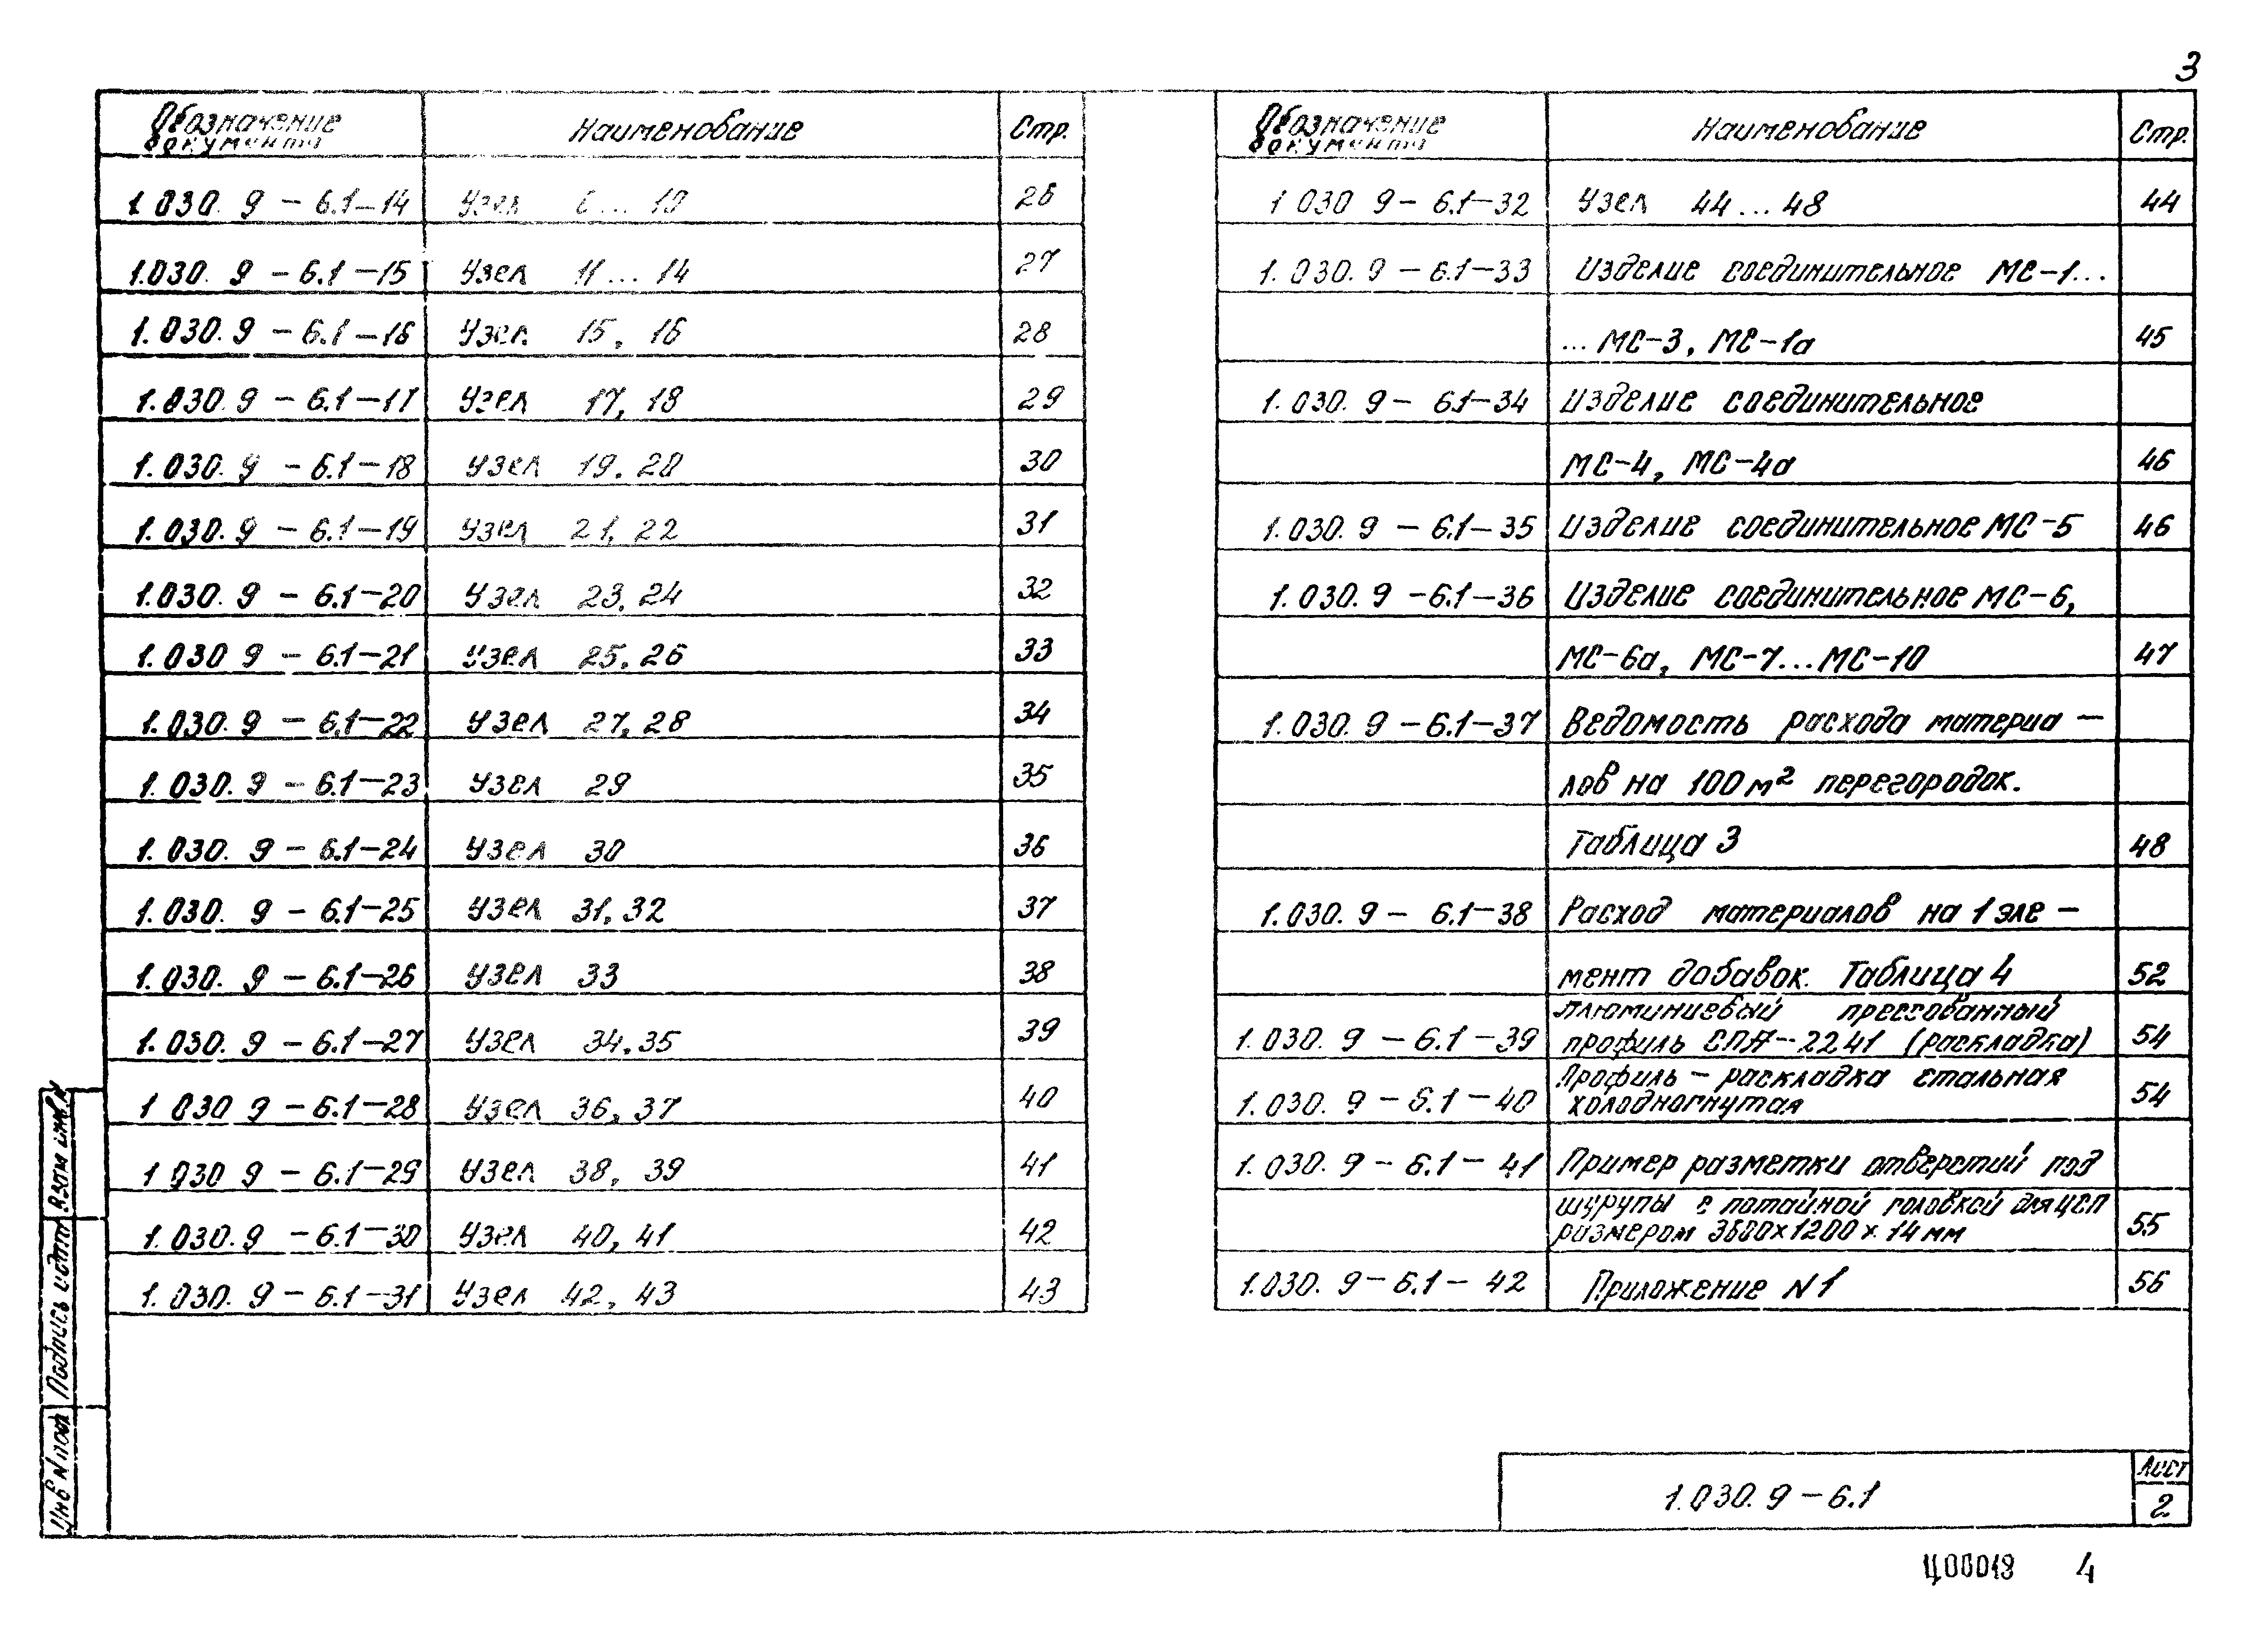 3
Обозначение документа Наименование Стр.
1.030.9-6.1-14 Узел 6...10 26
1.030.9-6.1-15 Узел 11...14 27
1.030.9-6.1-16 Узел 15, 16 28
1.030.9-6.1-17 Узел 17, 18 29
1.030.9-6.1-18 Узел 19, 20 30
1.030.9-6.1-19 Узел 21, 22 31
1.030.9-6.1-20 Узел 23, 24 32
1.030.9-6.1-21 Узел 25, 26 33
1.030.9-6.1-22 Узел 27, 28 34
1.030.9-6.1-23 Узел 29 35
1.030.9-6.1-24 Узел 30 36
1.030.9-6.1-25 Узел 31, 32 37
1.030.9-6.1-26 Узел 33 38
1.030.9-6.1-27 Узел 34, 35 39
1.030.9-6.1-28 Узел 36, 37 40
1.030.9-6.1-29 Узел 38, 39 41
1.030.9-6.1-30 Узел 40, 41 42
1.030.9-6.1-31 Узел 42, 43 43
Обозначение документа Наименование Стр.
1.030.9-6.1-32 Узел 44...48 44
1.030.9-6.1-33 Изделие соединительное МС-1...
...МС-3, МС-1а 45
1.030.9-6.1-34 Изделие соединительное
МС-4, МС-4а 46
1.030.9-6.1-35 Изделие соединительное МС-5 46
1.030.9-6.1-36 Изделие соединительное МС-6,
МС-6а, МС-7...МС-10 47
1.030.9-6.1-37 Ведомость расхода материа-
лов на 100 м² перегородок.
Таблица 3 48
1.030.9-6.1-38 Расход материалов на 1 эле-
мент добавок. Таблица 4 52
Алюминиевый прессованный
1.030.9-6.1-39 профиль СПА-2241 (раскладка) 54
Профиль-раскладка стальная
1.030.9-6.1-40 холодногнутая 54
1.030.9-6.1-41 Пример разметки отверстий под
шурупы с потайной головкой для ЦСП
размером 3600×1200×14 мм 55
1.030.9-6.1-42 Приложение N1 56
Инв N подл Подпись и дата Взам инв.N
1.030.9-6.1
Лист
2
Ц00013 4